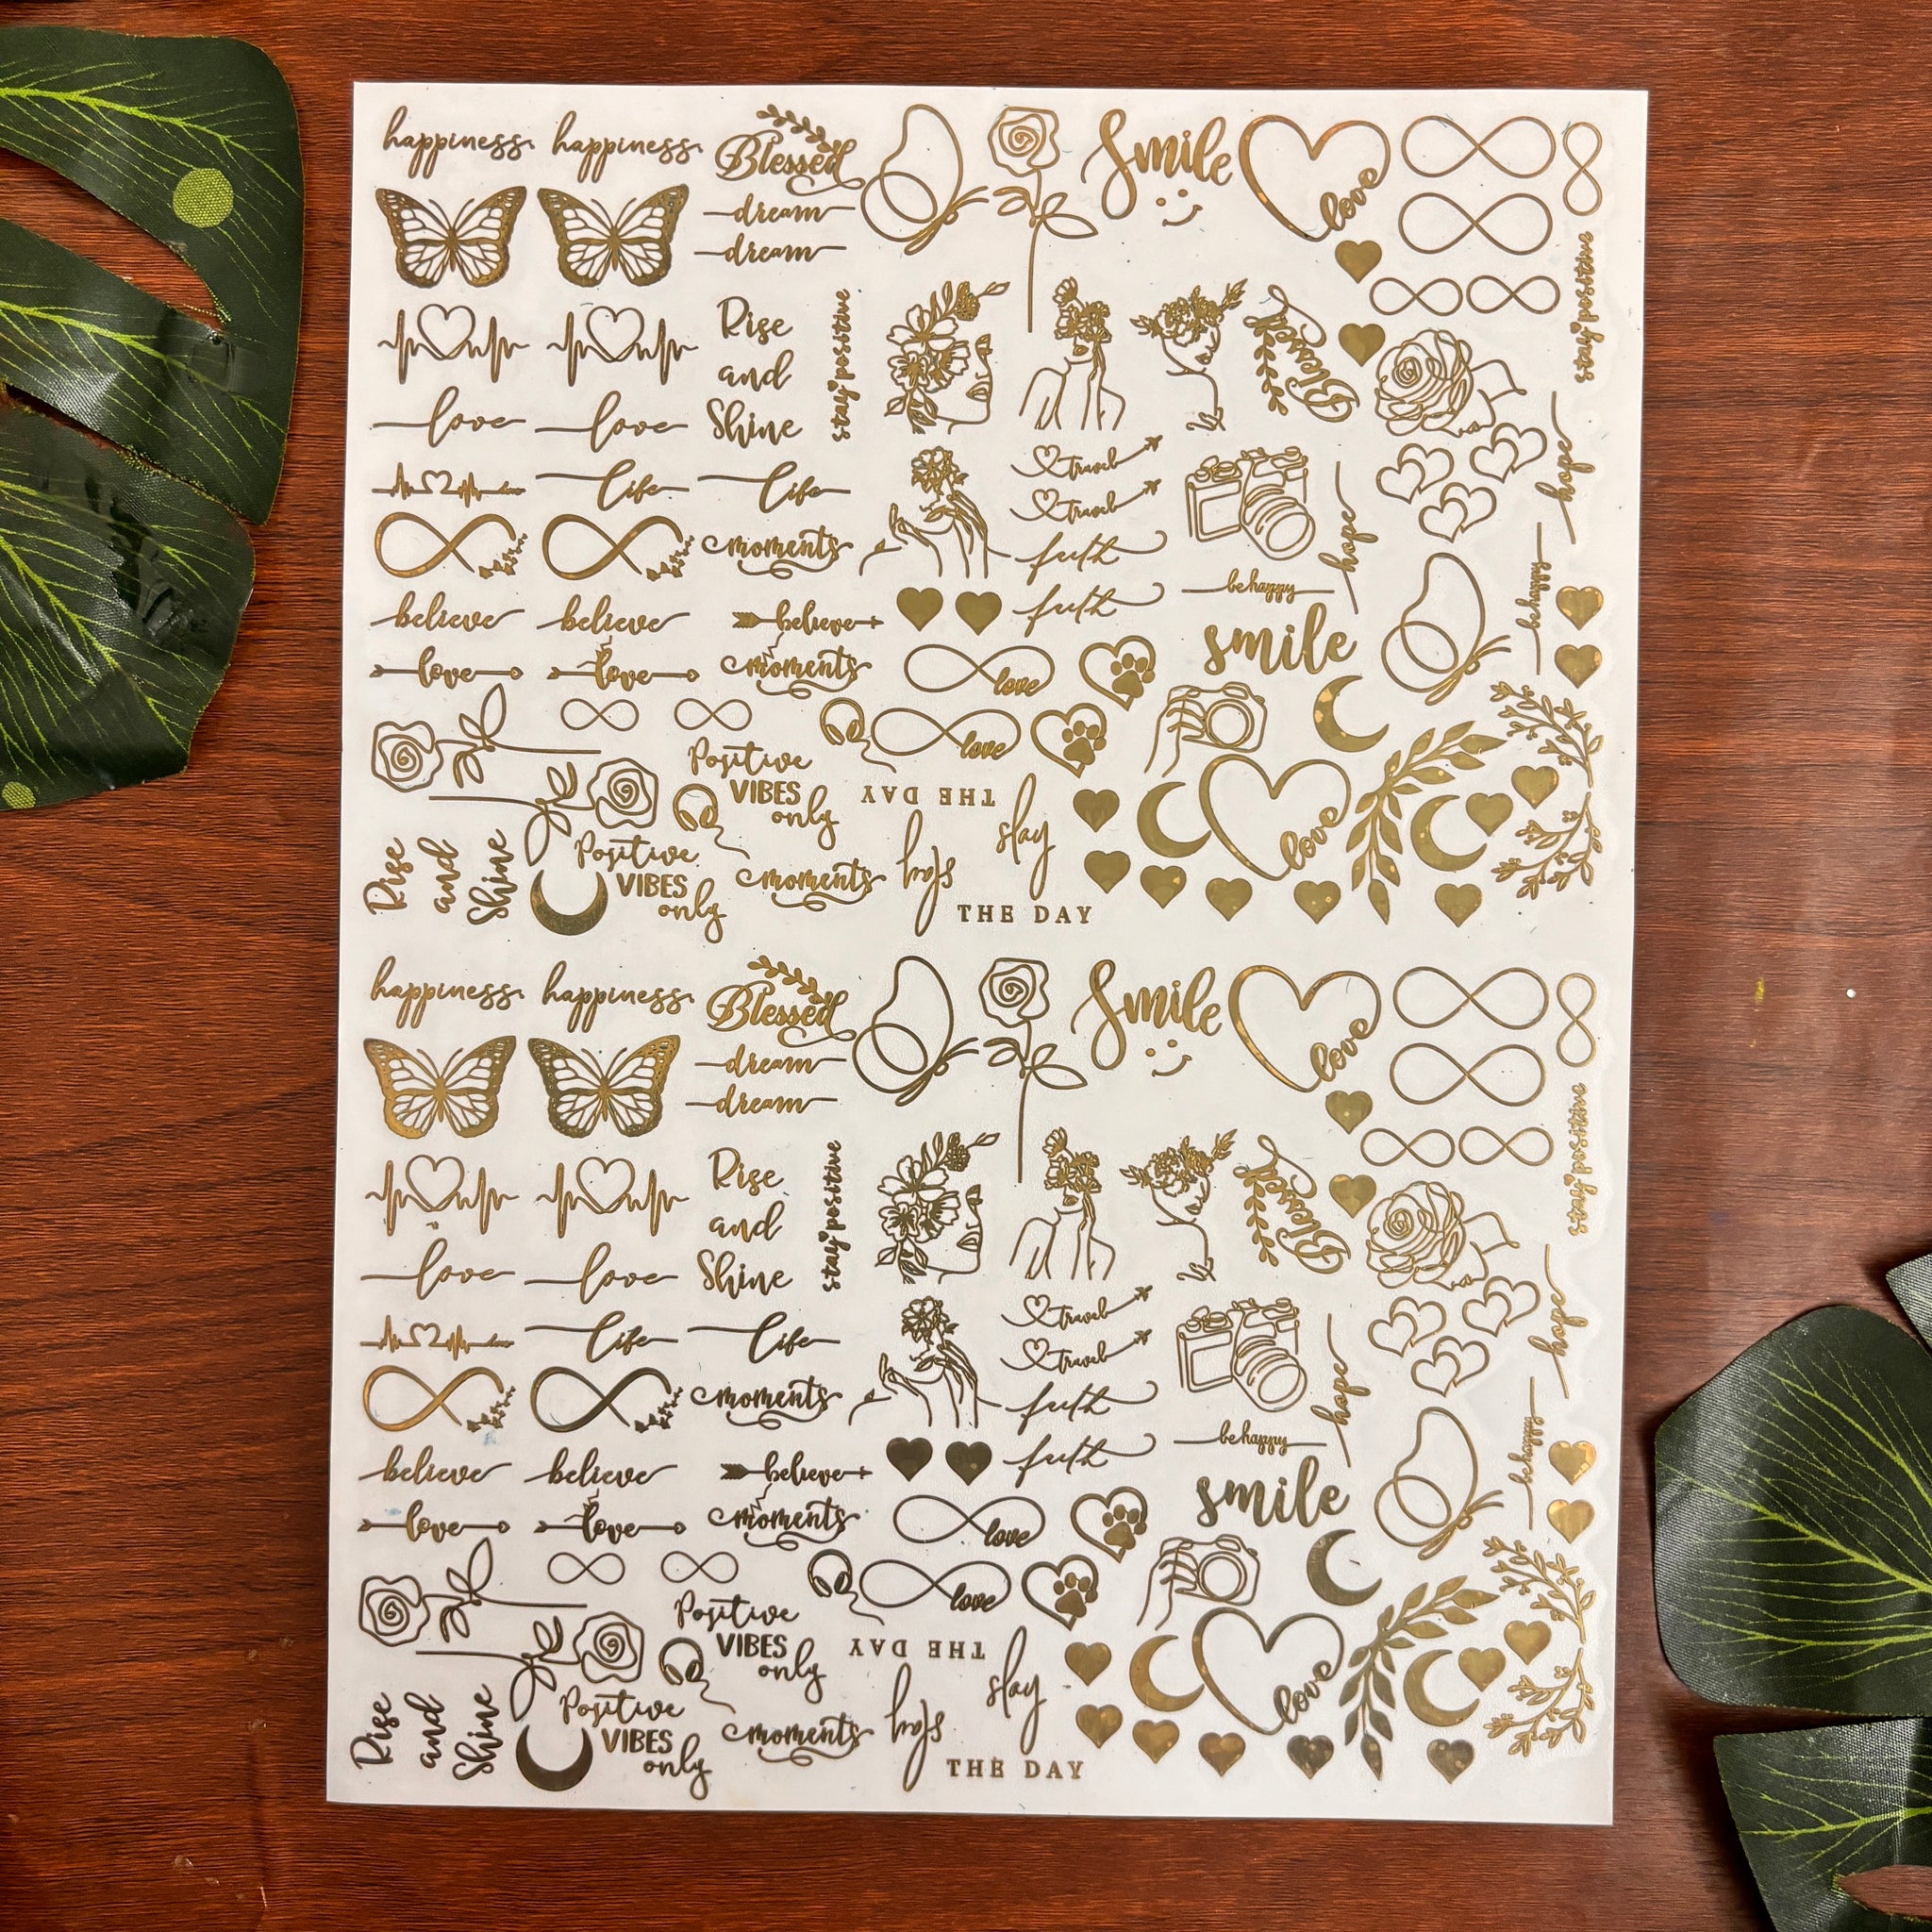 happiness happiness Blessed Smile love
dream
dream
stay positive
Rise
and
Shine
stay positive
Blessed
love love
travel
travel
hope
life life
hope
moments
faith
be happy
be happy
believe believe believe
faith
smile
love love moments
love
love
Positive
VIBES
only
THE DAY
slay
love
Rise
and
Shine
Positive
VIBES
only
moments
slay
THE DAY
happiness happiness Blessed Smile love
dream
dream
stay positive
Rise
and
Shine
stay positive
Blessed
love love
travel
travel
hope
life life
hope
moments
faith
be happy
be happy
believe believe believe
faith
smile
love love moments
love
love
Positive
VIBES
only
THE DAY
slay
love
Rise
and
Shine
Positive
VIBES
only
moments
slay
THE DAY